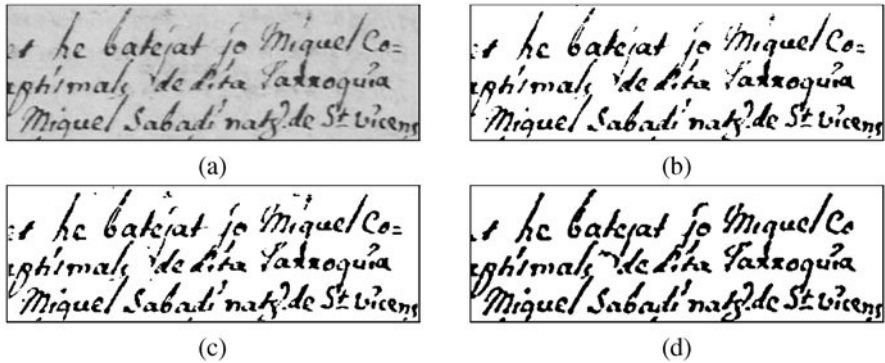 et he batejat jo Miquel Co=
aptismals de dita Parroquia
Miquel Sabadi natꝫ. de St. vicens
(a)
et he batejat jo Miquel Co=
aptismals de dita Parroquia
Miquel Sabadi natꝫ. de St. vicens
(b)
et he batejat jo Miquel Co=
aptismals de dita Parroquia
Miquel Sabadi natꝫ. de St. vicens
(c)
he batejat jo Miquel Co
aptismals de dita Parroquia
Miquel Sabadi natꝫ. de St. vicens
(d)